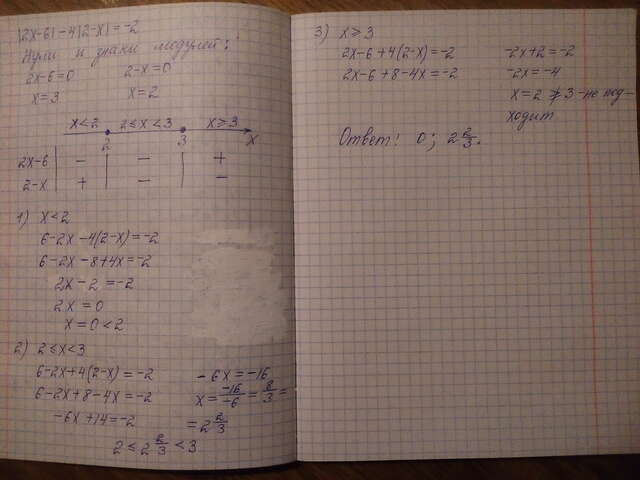 |2x-6|-4|2-x|=-2
Нули и знаки модулей:
2x-6=0 2-x=0
x=3 x=2
x<2 2≤x<3 x≥3
2 3 x
2x-6 - - +
2-x + - -
1) x<2
6-2x-4(2-x)=-2
6-2x-8+4x=-2
2x-2=-2
2x=0
x=0<2
2) 2≤x<3
6-2x+4(2-x)=-2
6-2x+8-4x=-2
-6x+14=-2
-6x=-16
x=-16/-6=8/3=
=2 2/3
2≤2 2/3<3
3) x≥3
2x-6+4(2-x)=-2
2x-6+8-4x=-2
-2x+2=-2
-2x=-4
x=2≱3-не под-
ходит
Ответ: 0; 2 2/3.